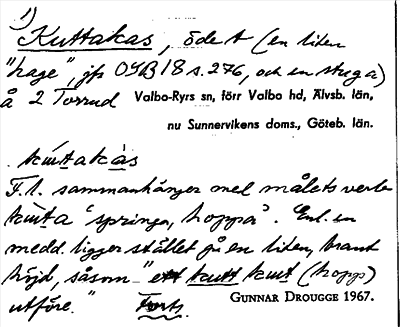 1)
Kuttakas, ödet (en liten
"hage", jfs OGB 18 s. 276, och en stuga)
å 2 Torrud Valbo-Ryrs sn, förr Valbo hd, Älvsb. län,
nu Sunnervikens doms., Göteb. län.
kuttakàs
F.l. sammanhänger med målets verb
kutta "springa, hoppa". Enl. en
medd. ligger stället på en liten, brant
höjd, såsom "ett kutt kutt (hopp)
utföre." Forts.
GUNNAR DROUGGE 1967.